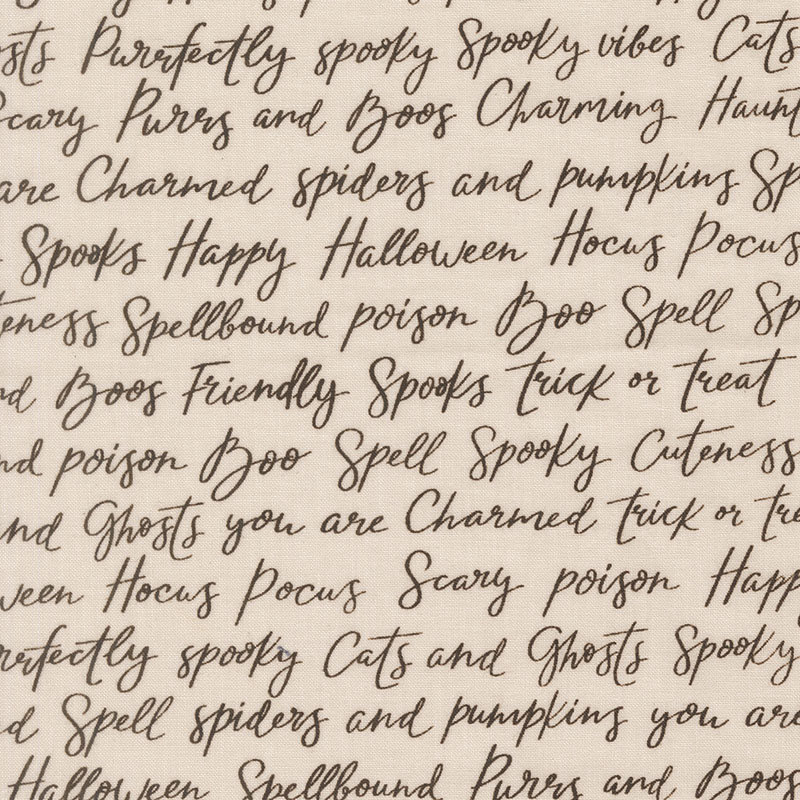 osts Purrfectly spooky Spooky vibes Cats
Scary Purrs and Boos Charming Haunt
are Charmed spiders and pumpkins Sp
Spooks Happy Halloween Hocus Pocus
teness Spellbound poison Boo Spell Sp
nd Boos Friendly Spooks trick or treat
nd poison Boo Spell Spooky Cuteness
and Ghosts you are Charmed trick or tre
ween Hocus Pocus Scary poison Happ
rrfectly spooky Cats and Ghosts Spooky
d Spell spiders and pumpkins you are
Halloween Spellbound Purrs and Boos